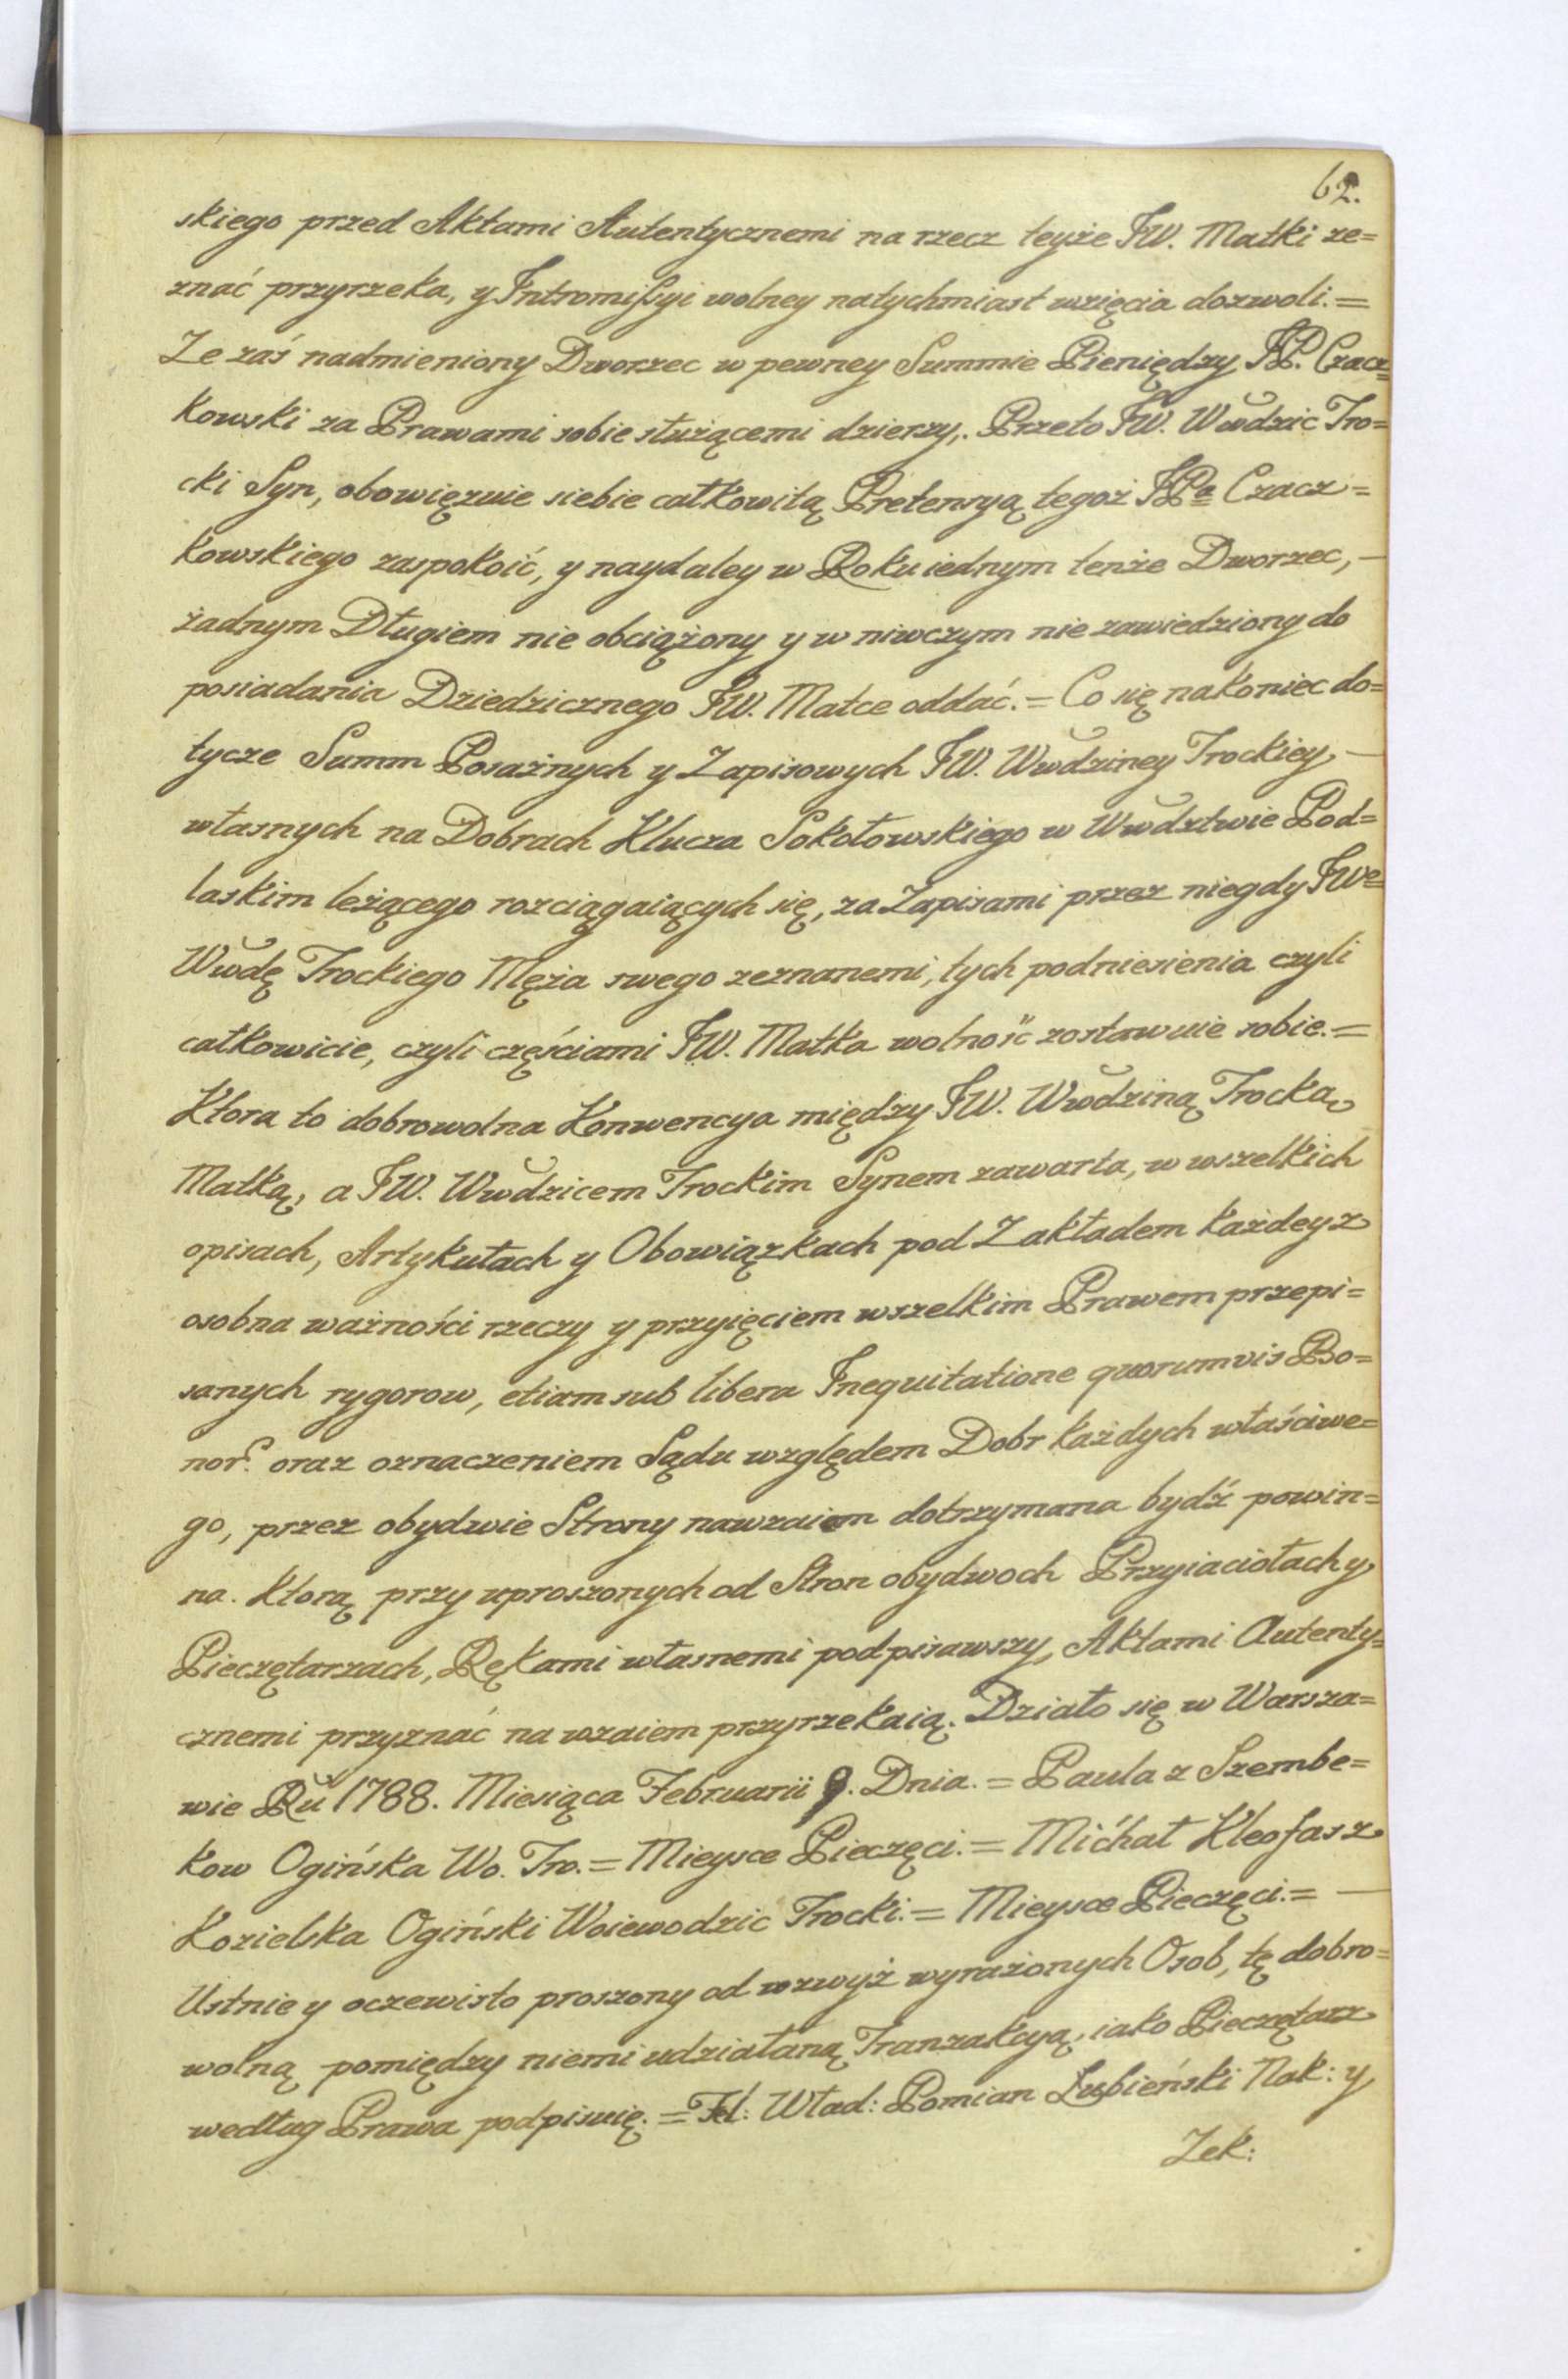 62.
skiego przed Aktami Autentycznemi na rzecz teyże JW. Matki ze=
znać przyrzeka, y Intromißyi wolney natychmiast wzięcia dozwoli. =
Ze zaś nadmieniony Dworzec w pewney Summie Pieniędzy JP. Czacz=
kowski za Prawami sobie służącemi dzierzy,. Przeto JW. Wwdzic Tro=
cki Syn, obowięzuie siebie całkowitą Pretensyą tegoż JPa Czacz=
kowskiego zaspokoić, y naydaley w Roku iednym tenże Dworzec, —
żadnym Długiem nie obciążony y w niwczym nie zawiedziony do
posiadania Dziedzicznego JW. Matce oddać. = Co się nakoniec do=
tycze Summ Posażnych y Zapisowych JW. Wwdziney Trockiey —
własnych na Dobrach Klucza Sokołowskiego w Wwdztwie Pod=
laskim leżącego rozciągaiących się, za Zapisami przez niegdy JWe
Wwdę Trockiego Męża swego zeznanemi, tych podniesienia czyli
całkowicie, czyli częściami JW. Matka wolność zostawuie sobie. =
Ktora to dobrowolna Konwencya między JW. Wwdziną Trocką
Matką, a JW. Wwdzicem Trockim Synem zawarta, w wszelkich
opisach, Artykułach y Obowiązkach pod Zakładem każdey z
osobna ważności rzeczy y przyięciem wszelkim Prawem przepi=
sanych rygorow, etiam sub libera Inequitatione quorumvis Bo=
nor. oraz oznaczeniem Sądu względem Dobr każdych właściwe=
go, przez obydwie Strony nawzaiem dotrzymana bydź powin=
na. Ktorą przy uproszonych od Stron obydwoch Przyiaciołach y
Pieczętarzach, Rękami własnemi podpisawszy, Aktami Autenty=
cznemi przyznać nawzaiem przyrzekaią. Działo się w Warsza=
wie Ru 1788. Miesiąca Februarii 9. Dnia. = Paula z Szembe=
kow Ogińska Wo. Tro. = Mieysce Pieczęci. = Michał Kleofas z
Kozielska Ogiński Woiewodzic Trocki. = Mieysce Pieczęci. = —
Ustnie y oczewisto proszony od wzwyż wyrażonych Osob, tę dobro=
wolną pomiędzy niemi udziałaną Tranzakcyą, iako Pieczętarz
według Prawa podpisuię. = Fel: Wład: Pomian Łubieński Nak: y
Zek: